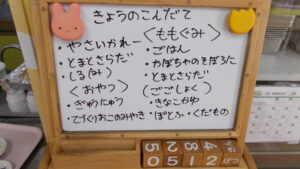 きょうのこんだて
・やさいかれー
・とまとさらだ
・しる(み)
〈おやつ〉
・ぎゅうにゅう
・てづくりおこのみやき
〈ももぐみ〉
・ごはん
・かぼちゃのそぼろに
・とまとさらだ
〈ごごしょく〉
・きなこかゆ
・ぽとふ・くだもの